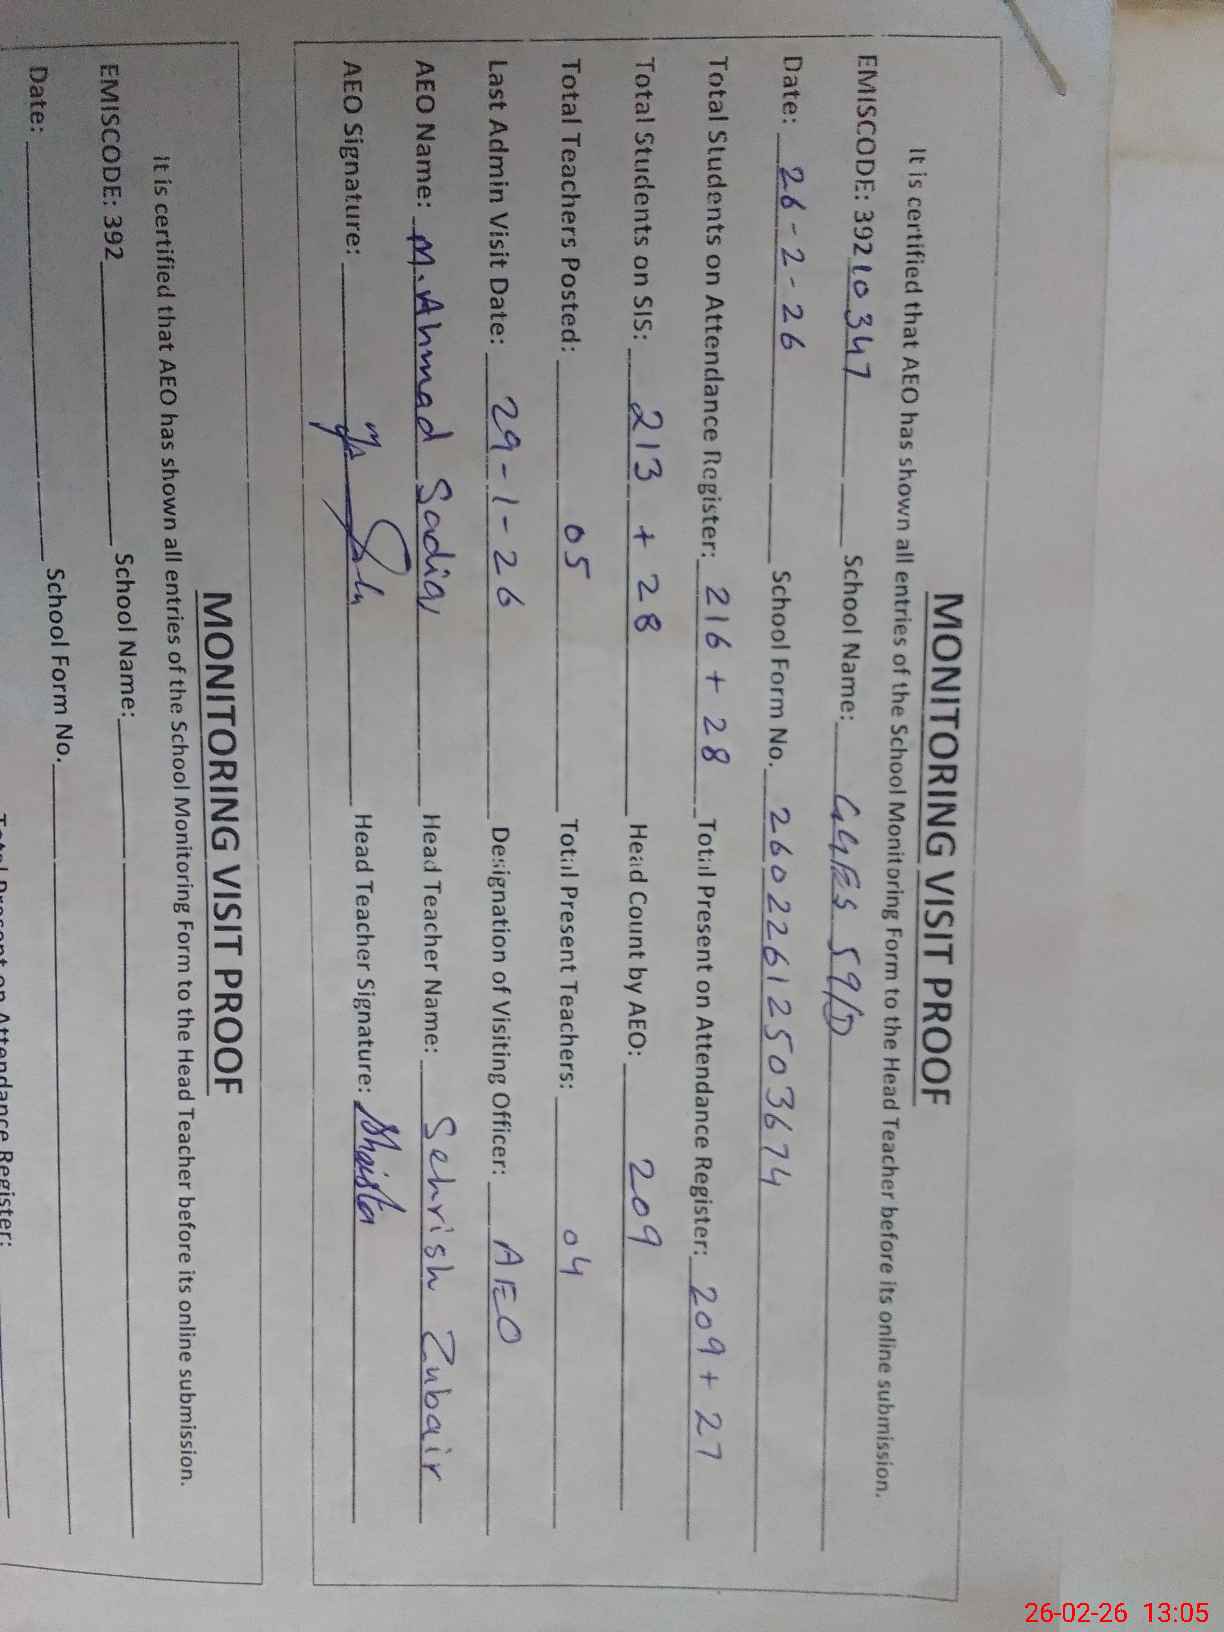 MONITORING VISIT PROOF
It is certified that AEO has shown all entries of the School Monitoring Form to the Head Teacher before its online submission.
EMISCODE: 39210347 School Name: GGES 59/D
Date: 26-2-26 School Form No. 26022612503674
Total Students on Attendance Register: 216 + 28 Total Present on Attendance Register: 209 + 27
Total Students on SIS: 213 + 28 Head Count by AEO: 209
Total Teachers Posted: 05 Total Present Teachers: 04
Last Admin Visit Date: 29-1-26 Designation of Visiting Officer: AEO
AEO Name: M. Ahmad Sadiq Head Teacher Name: Sehrish Zubair
AEO Signature: Head Teacher Signature: Shaista
MONITORING VISIT PROOF
It is certified that AEO has shown all entries of the School Monitoring Form to the Head Teacher before its online submission.
EMISCODE: 392 School Name:
Date: School Form No.
Total Present on Attendance Register:
26-02-26 13:05